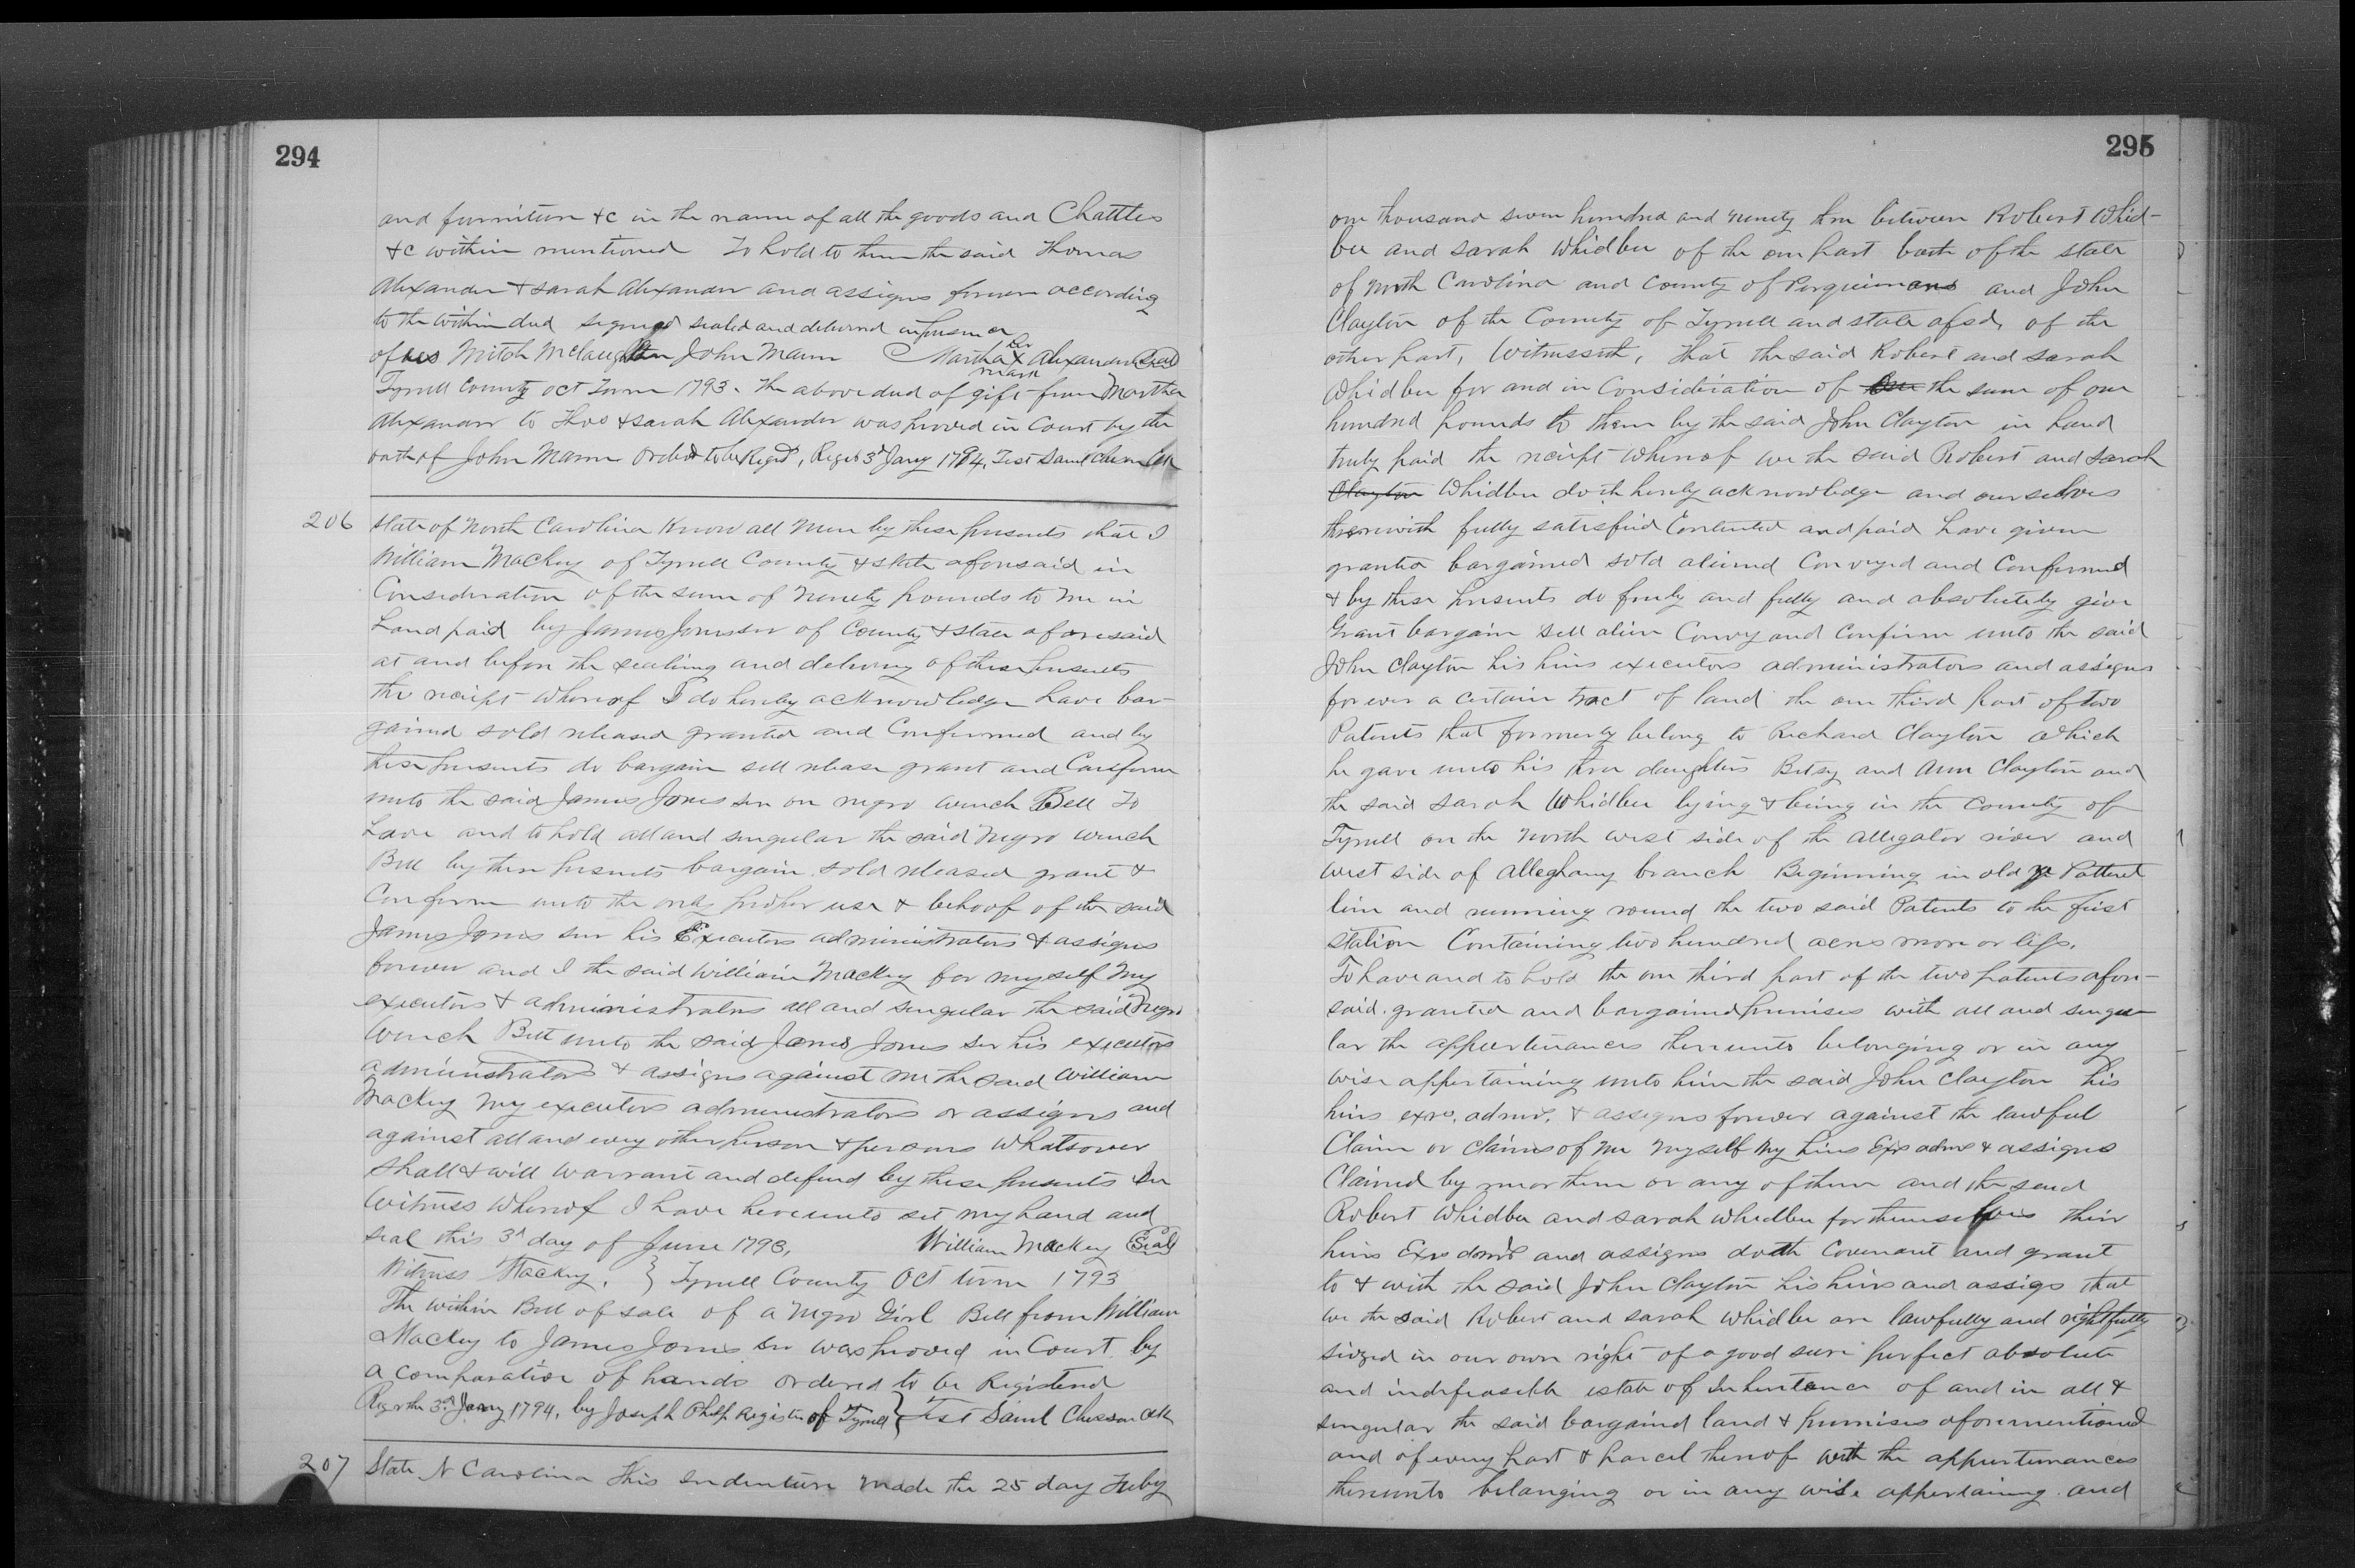 294
and furniture &c in the name of all the goods and Chattles
&c within mentioned To hold to them the said Thomas
Alexander & Sarah Alexander and assigns forever according
to the within deed signed sealed and delivered in presence
of us Mitch Mclaughlin John Mann Martha her X mark Alexander Seal
Tyrrell County Oct Term 1793. The above deed of gift from Martha
Alexander to Thos & Sarah Alexander was proved in Court by the
oath of John Mann Ordered to be Regd, Regd 3d Jany 1794, Test Saml Chesson Clk
206 State of North Carolina Know all Men by these presents that I
William Mackey of Tyrrell County & State aforesaid in
Consideration of the sum of Ninety pounds to me in
hand paid by James Jones ser of County & State aforesaid
at and before the sealing and delivery of these presents
the receipt whereof I do hereby acknowledge have bar-
gained sold released granted and Confirmed and by
these presents do bargain sell release grant and Confirm
unto the said James Jones ser one negro wench Bell To
have and to hold all and singular the said Negro wench
Bell by these presents bargain sold released grant &
Confirm unto the only proper use & behoof of the said
James Jones ser his Executors administrators & assigns
forever and I the said William Mackey for myself my
executors & administrators all and singular the said Negro
wench Bell unto the said James Jones ser his executors
administrators & assigns against me the said William
Mackey my executors administrators or assigns and
against all and every other person & persons whatsoever
shall & will warrant and defend by these presents In
Witness whereof I have hereunto set my hand and
seal this 3d day of June 1793, William Mackey Seal
Witness Mackey, } Tyrrell County Oct term 1793
The within Bill of sale of a Negro Girl Bell from William
Mackey to James Jones ser was proved in Court by
a comparation of hands ordered to be Registered
Reg the 3rd Jany 1794, by Joseph Phelp Register of Tyrrell } Test Saml Chesson Clk
207 State N Carolina This Indenture made the 25 day Feby
295
one thousand seven hundred and ninety three between Robert Whid-
bee and Sarah Whidbee of the one part both of the state
of North Carolina and County of Perquimans and John
Clayton of the County of Tyrrell and state afsd, of the
other part, Witnesseth, that the said Robert and Sarah
Whidbee for and in Consideration of the sum of one
hundred pounds to them by the said John Clayton in hand
truly paid the receipt whereof we the said Robert and Sarah
Clayton Whidbee doth hereby acknowledge and ourselves
therewith fully satisfied Contented and paid have given
granted bargained sold aliened Conveyed and Confirmed
& by these presents do freely and fully and absolutely give
Grant bargain sell alien Convey and Confirm unto the said
John Clayton his heirs executors administrators and assigns
forever a certain tract of land the one third part of two
Patents that formerly belong to Richard Clayton which
he gave unto his three daughters Betsy and Ann Clayton and
the said Sarah Whidbee lying & being in the County of
Tyrrell on the North west side of the Allegator river and
west side of Alleghany branch Beginning in old Pattent
line and running round the two said Patents to the first
station Containing two hundred acres more or less.
To have and to hold the one third part of the two patents afore-
said granted and bargained premises with all and singu-
lar the appurtinances thereunto belonging or in any
wise appertaining unto him the said John Clayton his
heirs exrs, admrs, & assigns forever against the lawful
Claim or claims of me myself my heirs Exrs admrs & assigns
Claimed by me or them or any of them and the said
Robert Whidbee and Sarah Whidbee for themselves their
heirs Exrs admrs and assigns doth Covenant and grant
to & with the said John Clayton his heirs and assigs that
we the said Robert and Sarah Whidbee are lawfully and rightfully
siezed in our own right of a good sure perfect absolute
and indefeasible estate of Inheritance of and in all &
singular the said bargaind land & premises aforementioned
and of every part & parcel thereof with the appurtenances
thereunto belonging or in any wise appertaining and